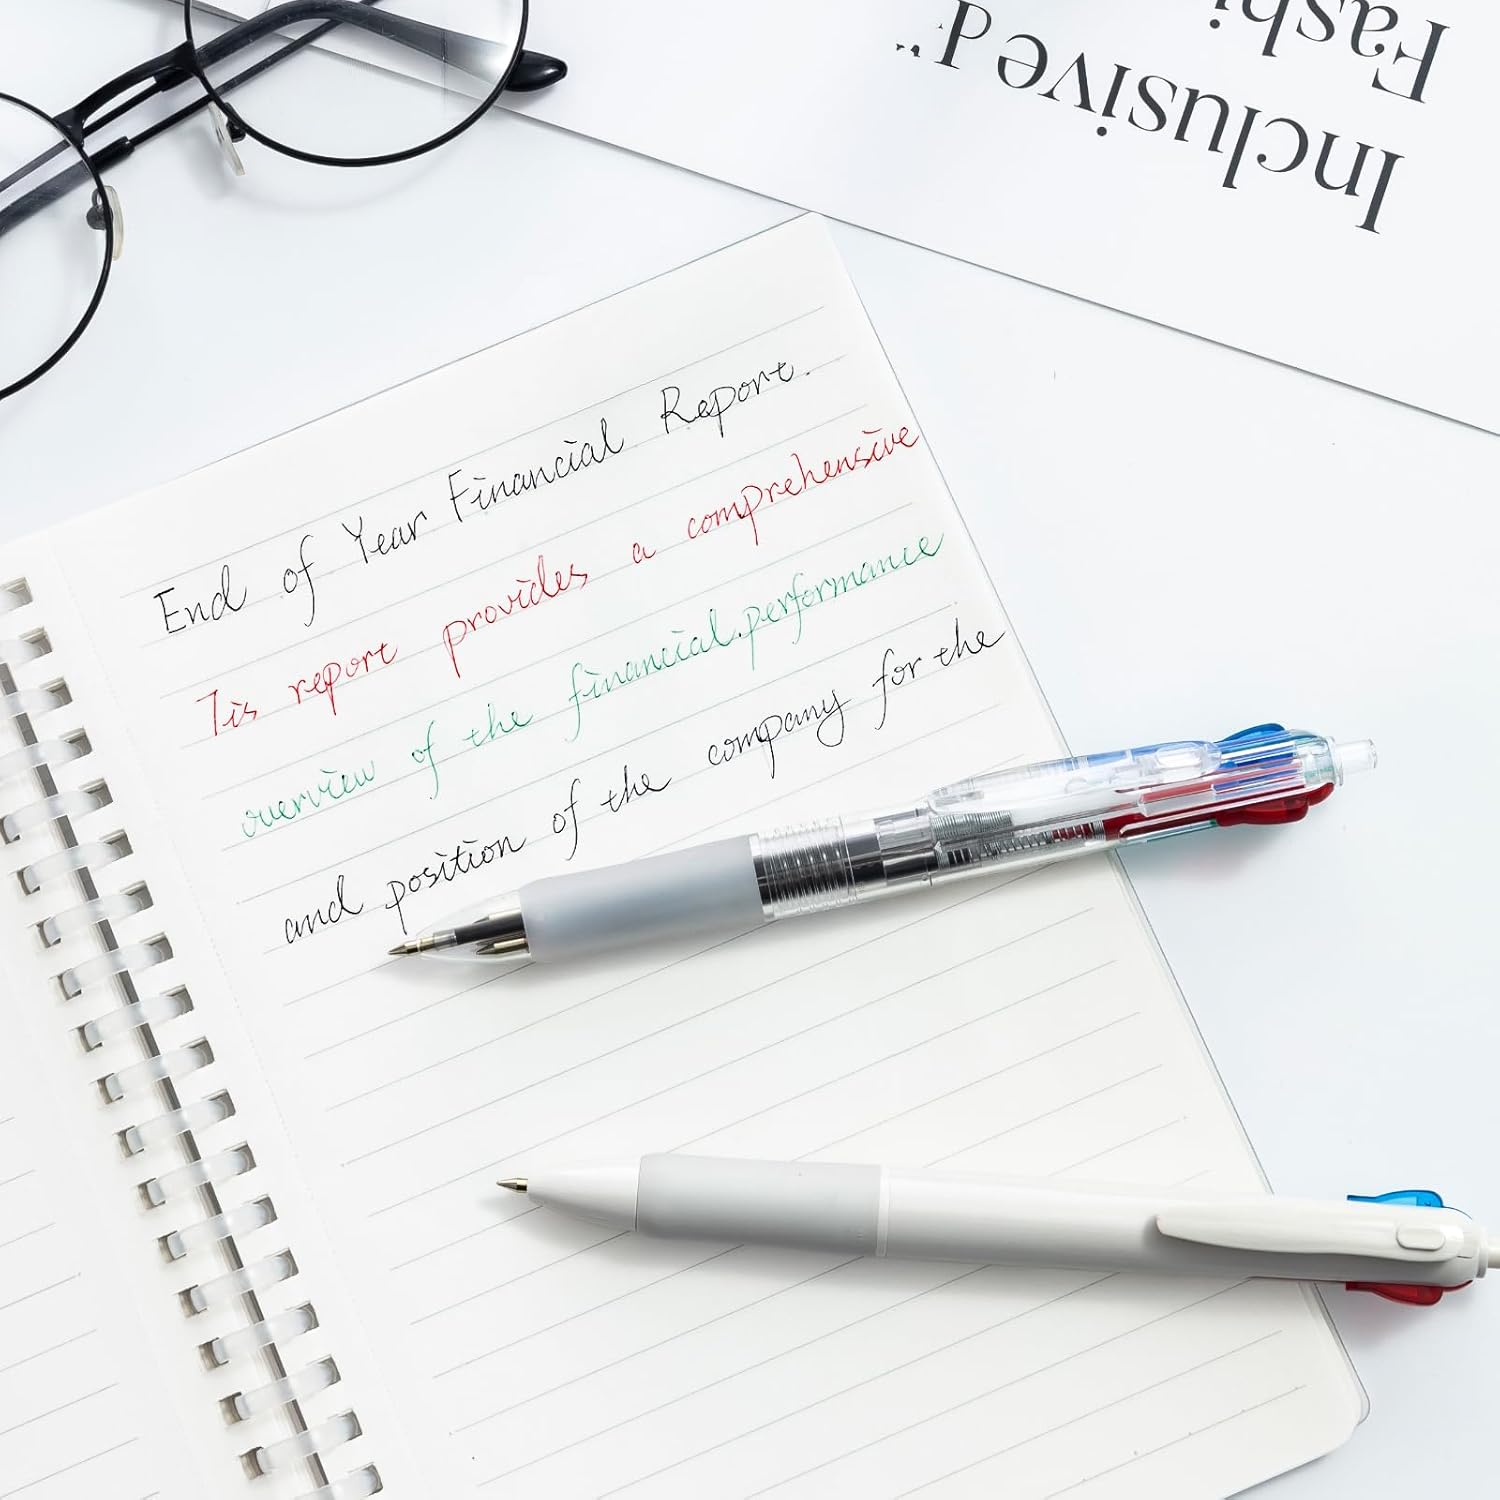 End of Year Financial Report.
Tis report provides a comprehensive
overview of the financial.performance
and position of the company for the
Inclusive d"
Fashi